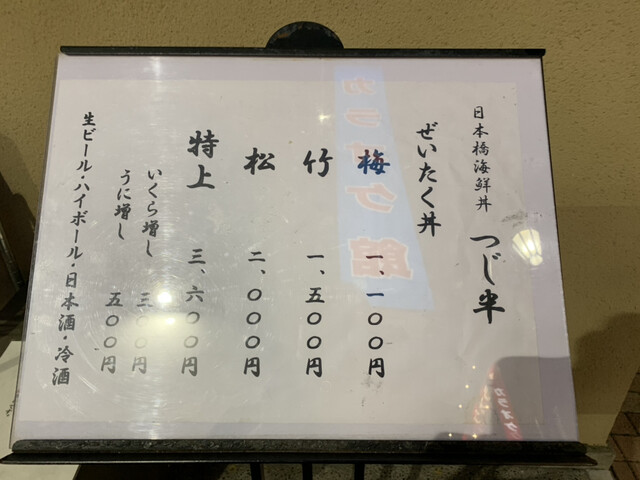 日本橋海鮮丼 つじ半
ぜいたく丼
梅 一、一〇〇円
竹 一、五〇〇円
松 二、〇〇〇円
特上 三、六〇〇円
いくら増し 三〇〇円
うに増し 五〇〇円
生ビール・ハイボール・日本酒・冷酒
カラオケ館
カラオケ